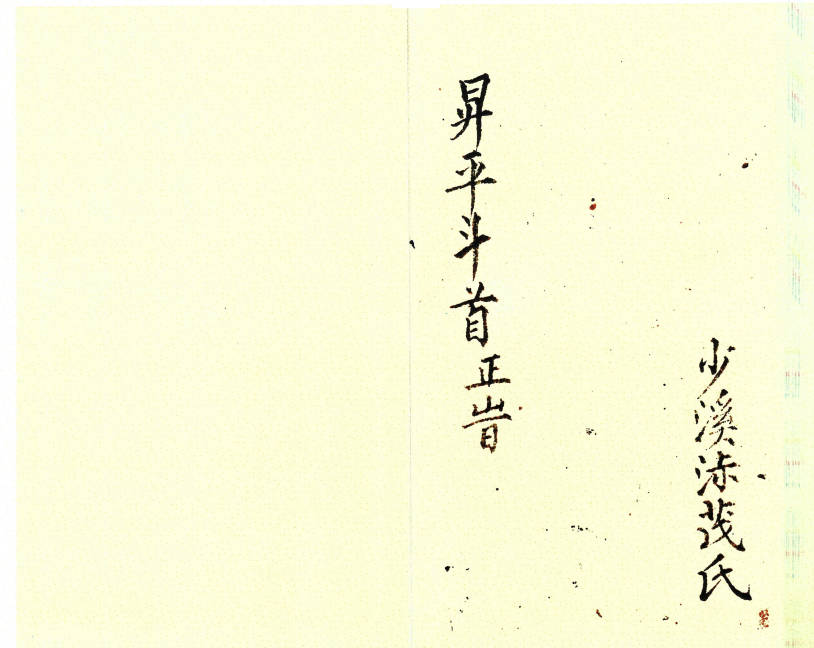 少溪茂氏
昇平斗首正旹